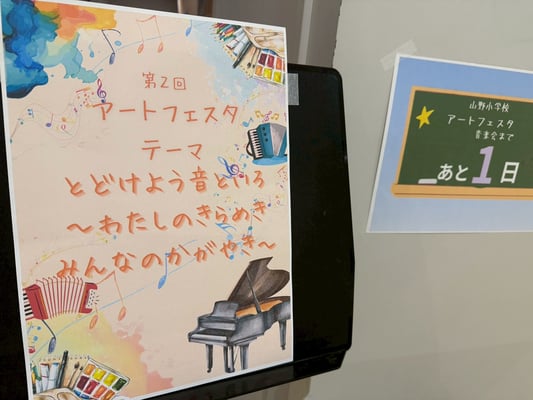 第2回
アートフェスタ
テーマ
とどけよう音といろ
～わたしのきらめき
みんなのかがやき～
山野小学校
アートフェスタ
音楽会まで
あと1日